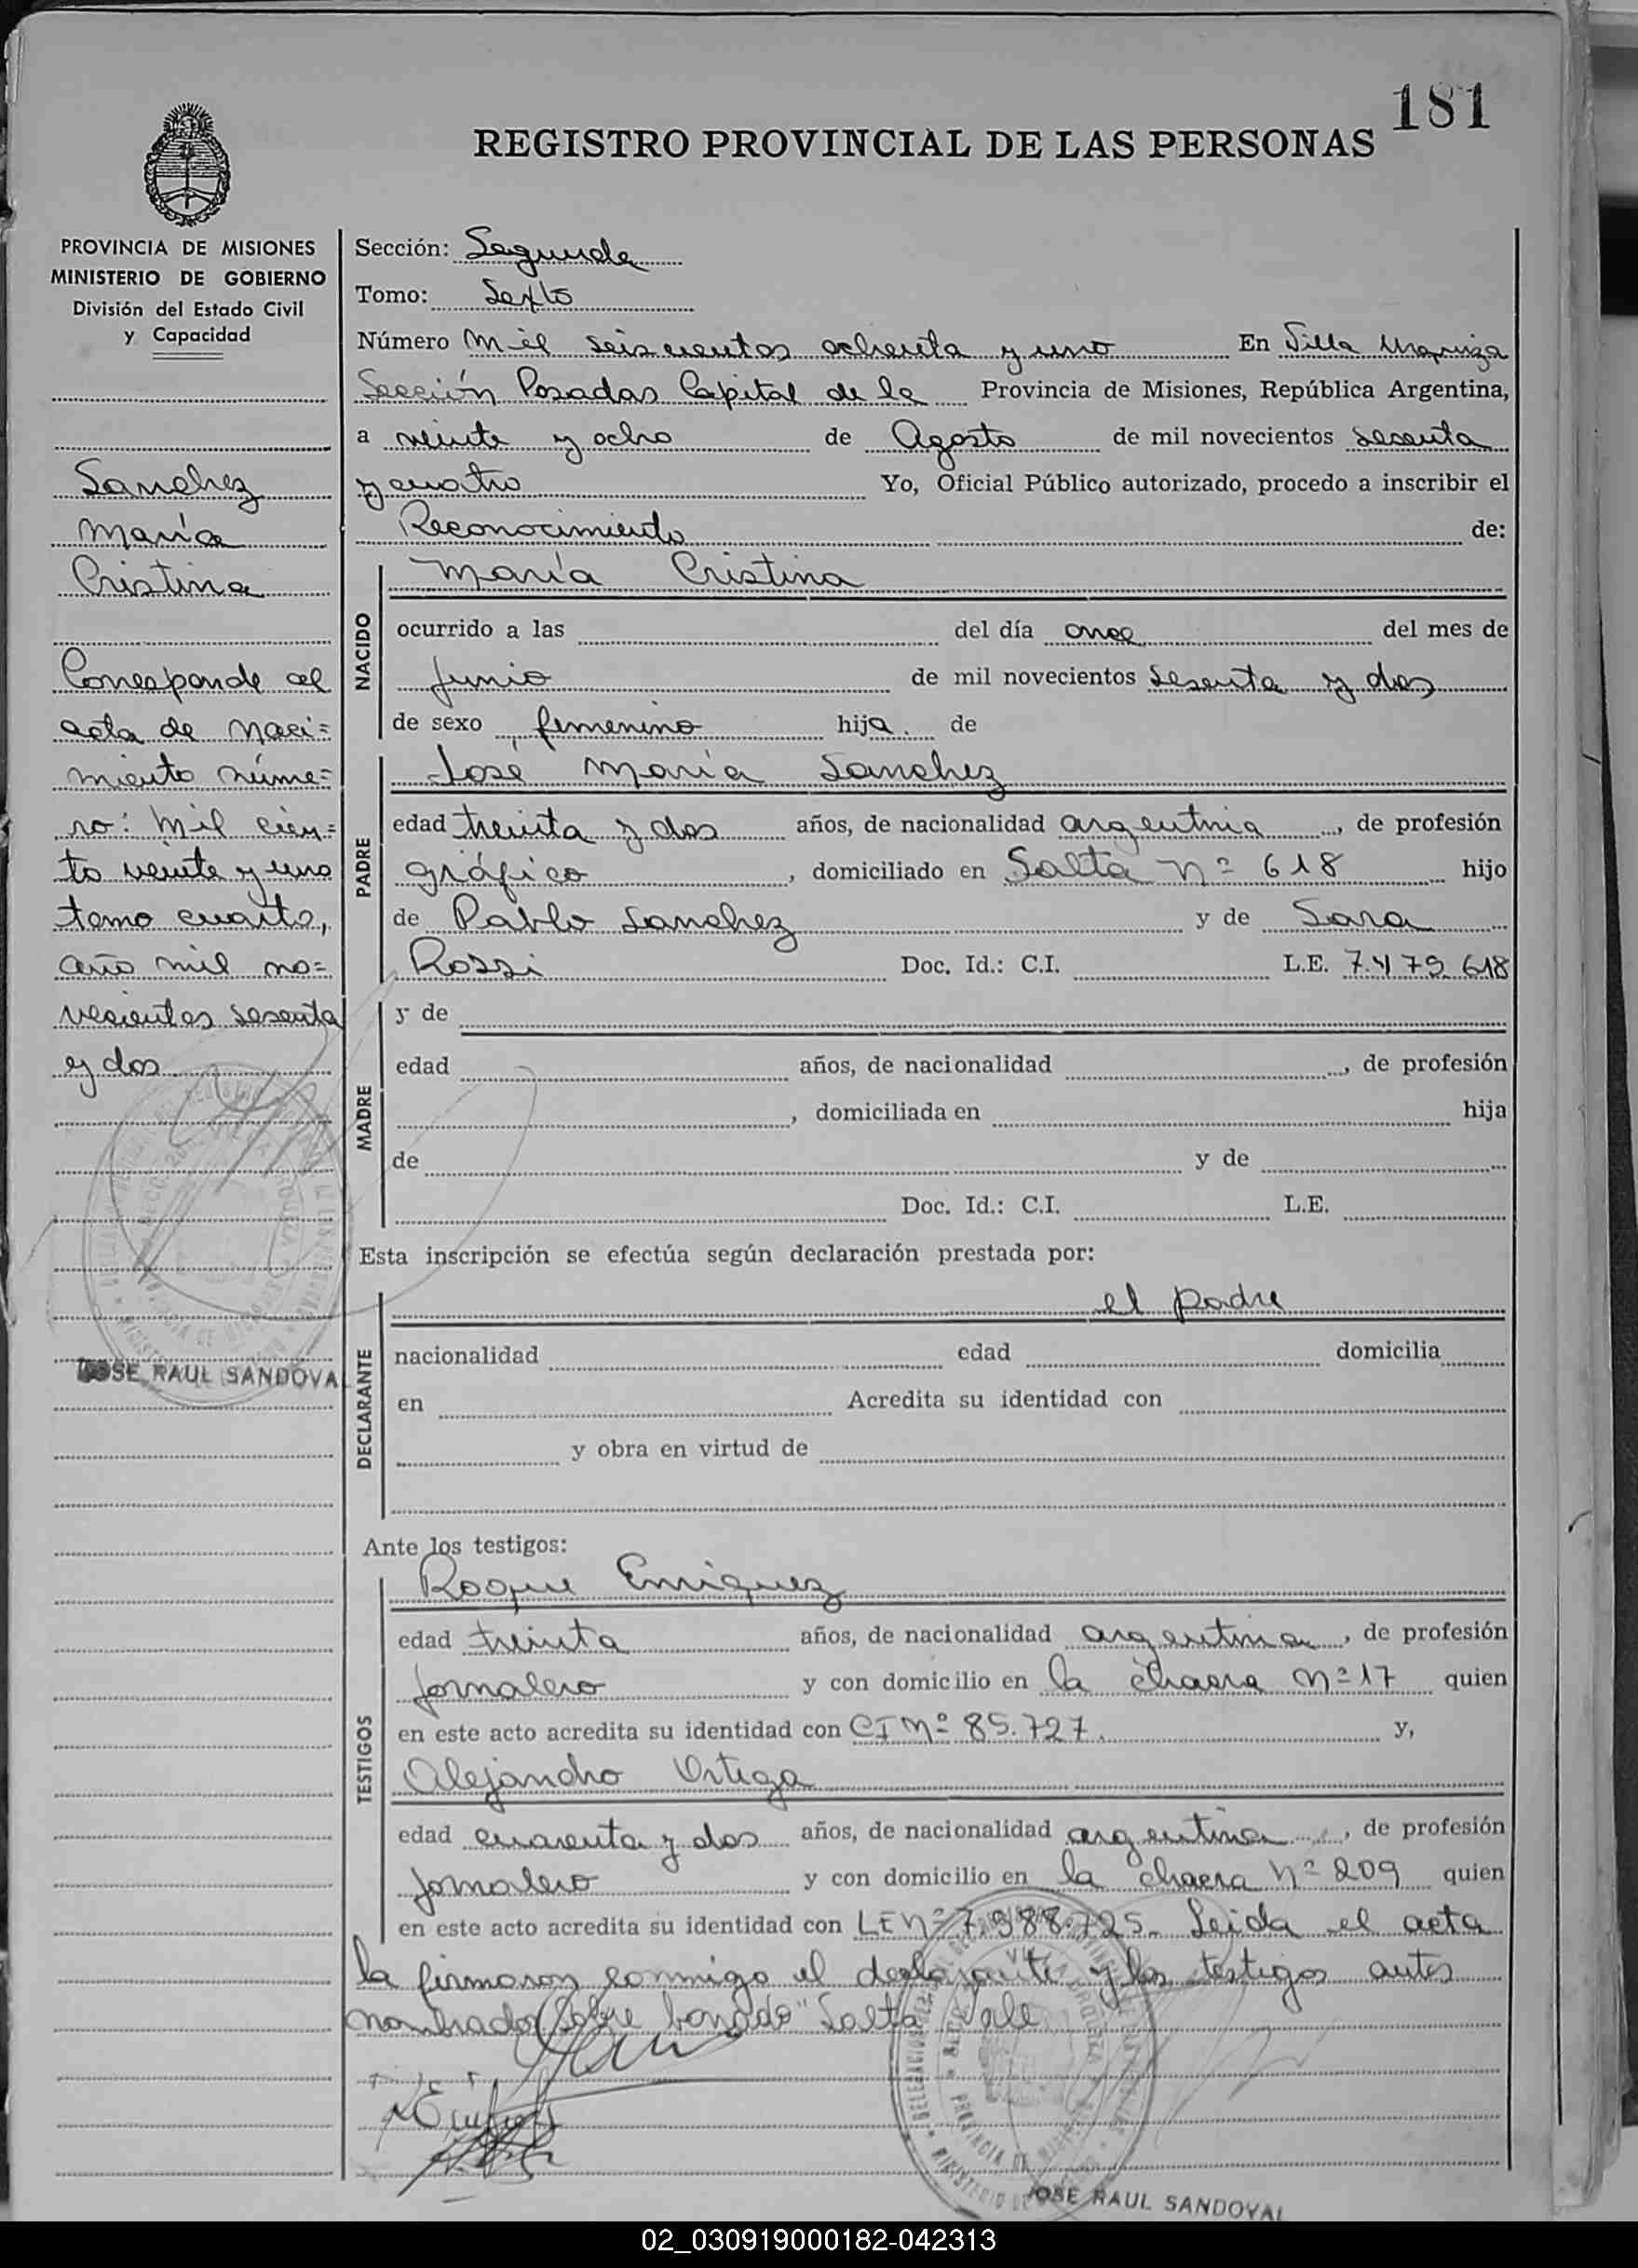 181
REGISTRO PROVINCIAL DE LAS PERSONAS
PROVINCIA DE MISIONES
MINISTERIO DE GOBIERNO
División del Estado Civil
y Capacidad
Sanchez
María
Cristina
Corresponde al
acta de naci=
miento núme=
ro: mil cien=
to veinte y uno
tomo cuarto,
año mil no=
vecientos sesenta
y dos
JOSE RAUL SANDOVAL
Sección: Segunda
Tomo: Sexto
Número mil seiscientos ochenta y uno En Villa Urquiza
Sección Posadas Capital de la Provincia de Misiones, República Argentina,
a veinte y ocho de Agosto de mil novecientos sesenta
y cuatro Yo, Oficial Público autorizado, procedo a inscribir el
Reconocimiento de:
NACIDO
María Cristina
ocurrido a las del día once del mes de
junio de mil novecientos sesenta y dos
de sexo femenino hija. de
PADRE
José María Sanchez
edad treinta y dos años, de nacionalidad argentina, de profesión
gráfico, domiciliado en Salta nº 618 hijo
de Pablo Sanchez y de Sara
Rossi Doc. Id.: C.I. L.E. 7.479.618
MADRE
y de
edad años, de nacionalidad , de profesión
, domiciliada en hija
de y de
Doc. Id.: C.I. L.E.
Esta inscripción se efectúa según declaración prestada por:
DECLARANTE
el padre
nacionalidad edad domicilia
en Acredita su identidad con
y obra en virtud de
Ante los testigos:
TESTIGOS
Roque Enriquez
edad treinta años, de nacionalidad argentina, de profesión
jornalero y con domicilio en la chacra nº 17 quien
en este acto acredita su identidad con CI Nº 85.727. y,
Alejandro Ortega
edad cuarenta y dos años, de nacionalidad argentina, de profesión
jornalero y con domicilio en la chacra nº 209 quien
en este acto acredita su identidad con LE nº 7.988.725. Leida el acta
la firmaron conmigo el declarante y los testigos antes
nombrados Sobre borrado "Salta" Vale
JOSE RAUL SANDOVAL
02_030919000182-042313